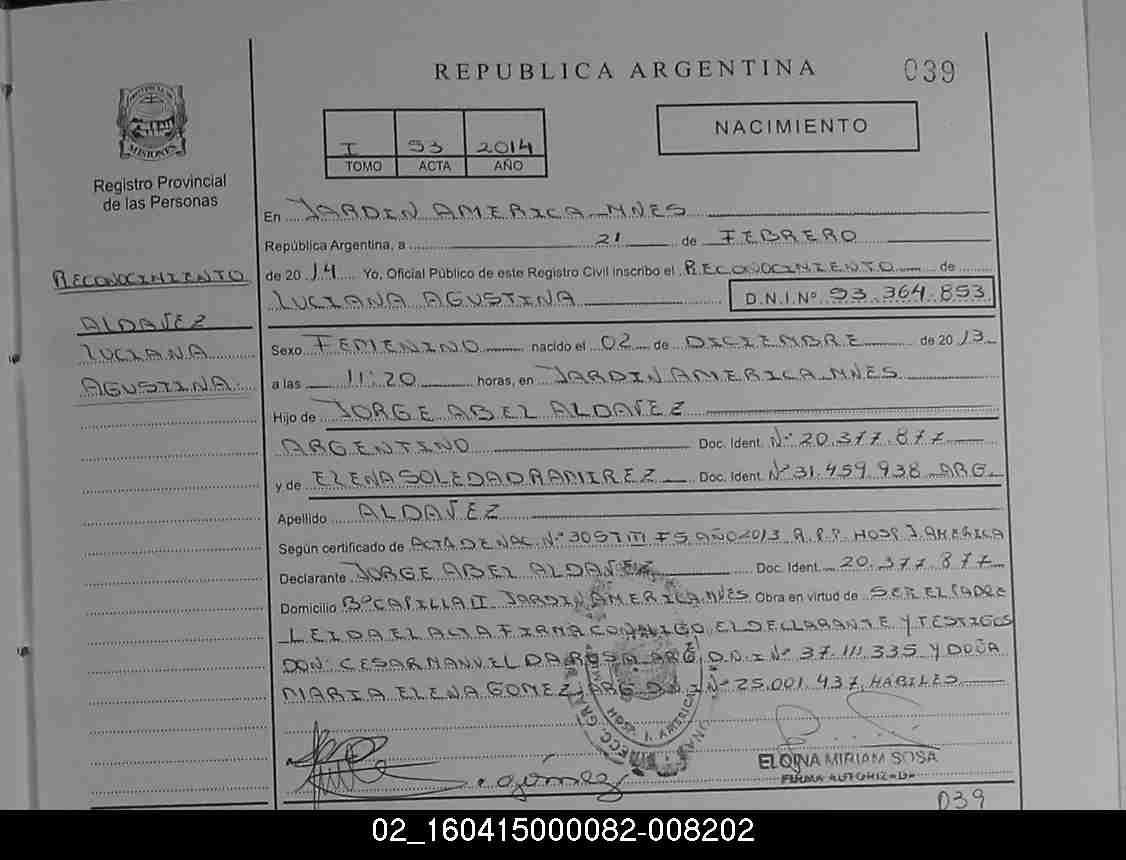 REPUBLICA ARGENTINA 039
PROVINCIA DE MISIONES
Registro Provincial
de las Personas
I 93 2014
TOMO ACTA AÑO
NACIMIENTO
RECONOCIMIENTO
ALDAVEZ
LUCIANA
AGUSTINA
En JARDIN AMERICA MNES
República Argentina, a 21 de FEBRERO
de 2014 Yo, Oficial Público de este Registro Civil inscribo el RECONOCIMIENTO de
LUCIANA AGUSTINA D.N.I.Nº 53.364.853
Sexo FEMENINO nacido el 02 de DICIEMBRE de 2013
a las 11:20 horas, en JARDIN AMERICA MNES
Hijo de JORGE ABEL ALDAVEZ
ARGENTINO Doc. Ident. Nº 20.377.877
y de ELENA SOLEDAD RAMIREZ Doc. Ident. Nº 31.459.938 ARG
Apellido ALDAVEZ
Según certificado de ACTA DE NAC. Nº 305 TIII F5 AÑO 2013 R.P.P. HOSP J. AMERICA
Declarante JORGE ABEL ALDAVEZ Doc. Ident. 20.377.877
Domicilio Bº CAPILLA II JARDIN AMERICA MNES Obra en virtud de SER EL PADRE
LEIDA EL ACTA FIRMA CONMIGO EL DECLARANTE Y TESTIGOS
DON: CESAR MANUEL DA ROSA ARG D.N.I Nº 37.111.335 Y DOÑA
MARIA ELENA GOMEZ, ARG D.N.I Nº 25.001.437, HABILES
HOSP. J. AMERICA
Gómez
ELOINA MIRIAM SOSA
FIRMA AUTORIZADA
039
02_160415000082-008202